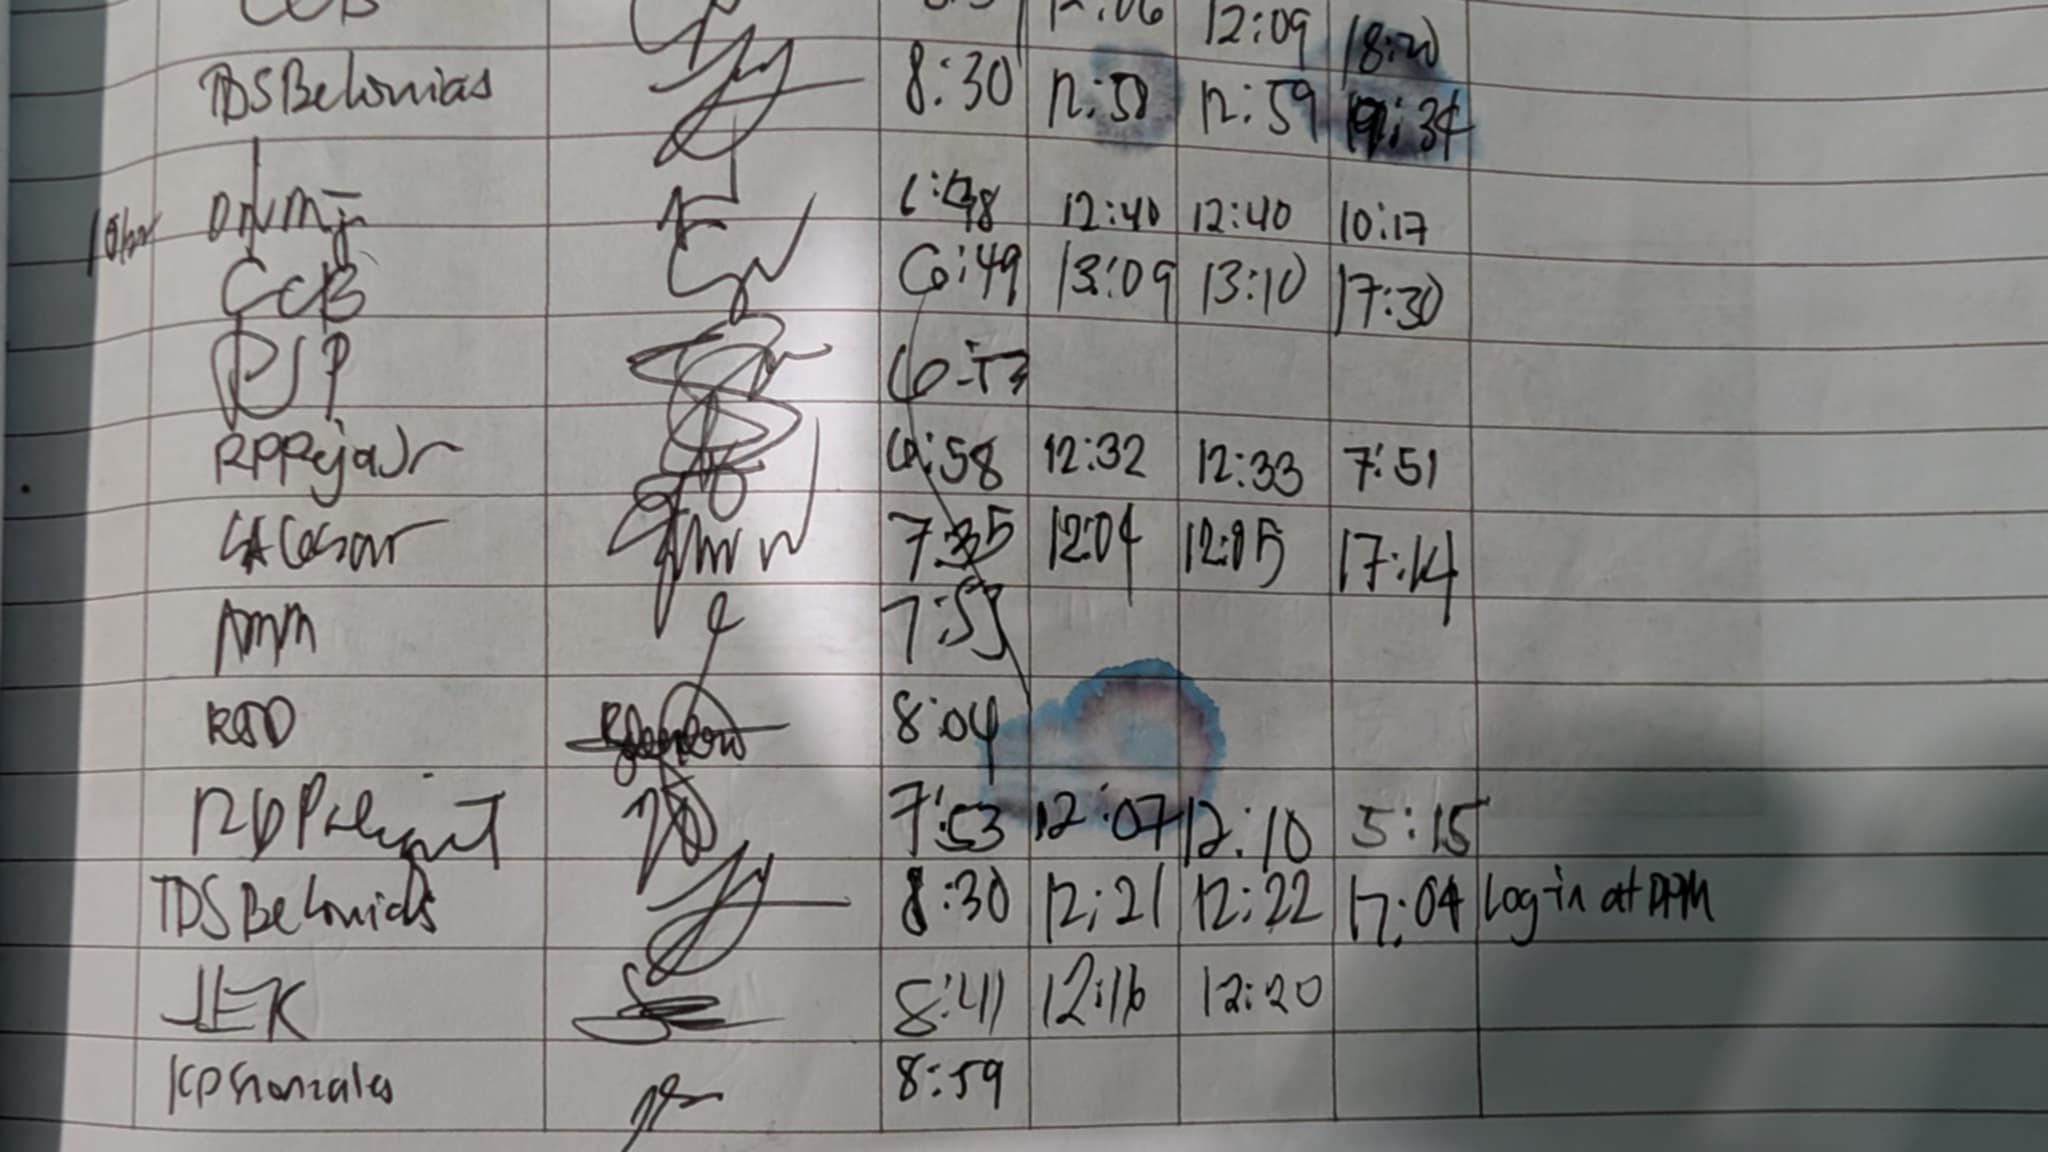 CCB 12:06 12:09 18:20
TDSBelonias 8:30 12:58 12:59 19:34
6:48 12:40 12:40 10:17
CCB 6:49 13:09 13:10 17:30
PJP 6:53
RPRejaJr 6:58 12:32 12:33 7:51
7:35 12:04 12:05 17:14
AMM 7:53
RSD 8:04
7:53 12:07 12:10 5:15
TDSBelonias 8:30 12:21 12:22 17:04 Log in at DPM
JEK 8:41 12:16 12:20
KPGonzales 8:59